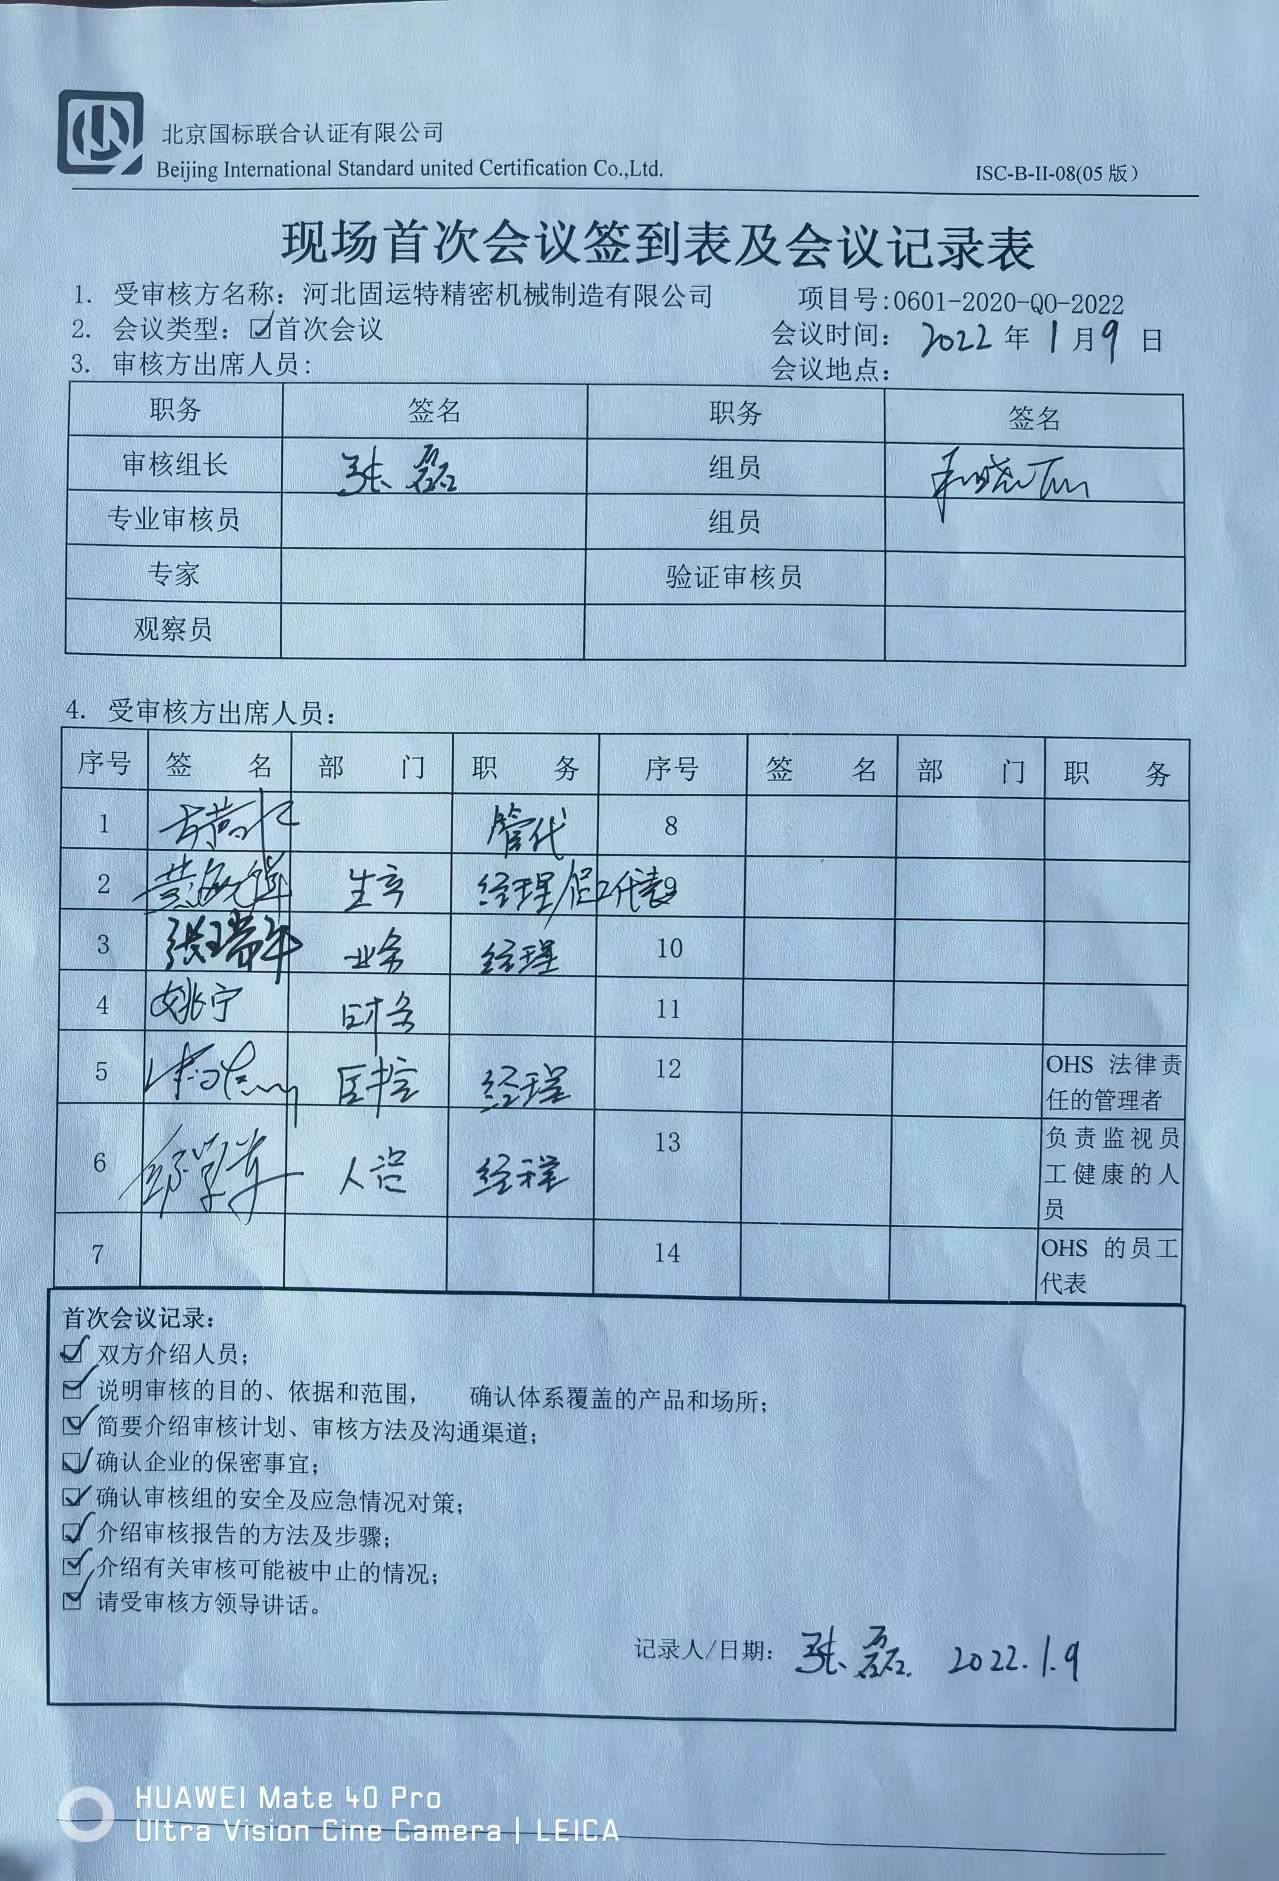 北京国标联合认证有限公司
Beijing International Standard united Certification Co.,Ltd.
ISC-B-II-08(05 版)
现场首次会议签到表及会议记录表
1. 受审核方名称：河北固运特精密机械制造有限公司 项目号:0601-2020-QO-2022
2. 会议类型：☑首次会议 会议时间： 2022 年 1 月 9 日
3. 审核方出席人员: 会议地点：
职务 签名 职务 签名
审核组长 张磊 组员
专业审核员 组员
专家 验证审核员
观察员
4. 受审核方出席人员：
序号 签 名 部 门 职 务 序号 签 名 部 门 职 务
1 管代 8
2 生产 经理/员工代表 9
3 张瑞年 业务 经理 10
4 姚宁 财务 11
5 经理 12 OHS 法律责
任的管理者
6 经理 13 负责监视员
工健康的人
员
7 14 OHS 的员工
代表
首次会议记录：
☑ 双方介绍人员；
☑ 说明审核的目的、依据和范围， 确认体系覆盖的产品和场所；
☑ 简要介绍审核计划、审核方法及沟通渠道；
☑ 确认企业的保密事宜；
☑ 确认审核组的安全及应急情况对策；
☑ 介绍审核报告的方法及步骤；
☑ 介绍有关审核可能被中止的情况；
☑ 请受审核方领导讲话。
记录人/日期： 张磊. 2022.1.9
HUAWEI Mate 40 Pro
Ultra Vision Cine Camera | LEICA